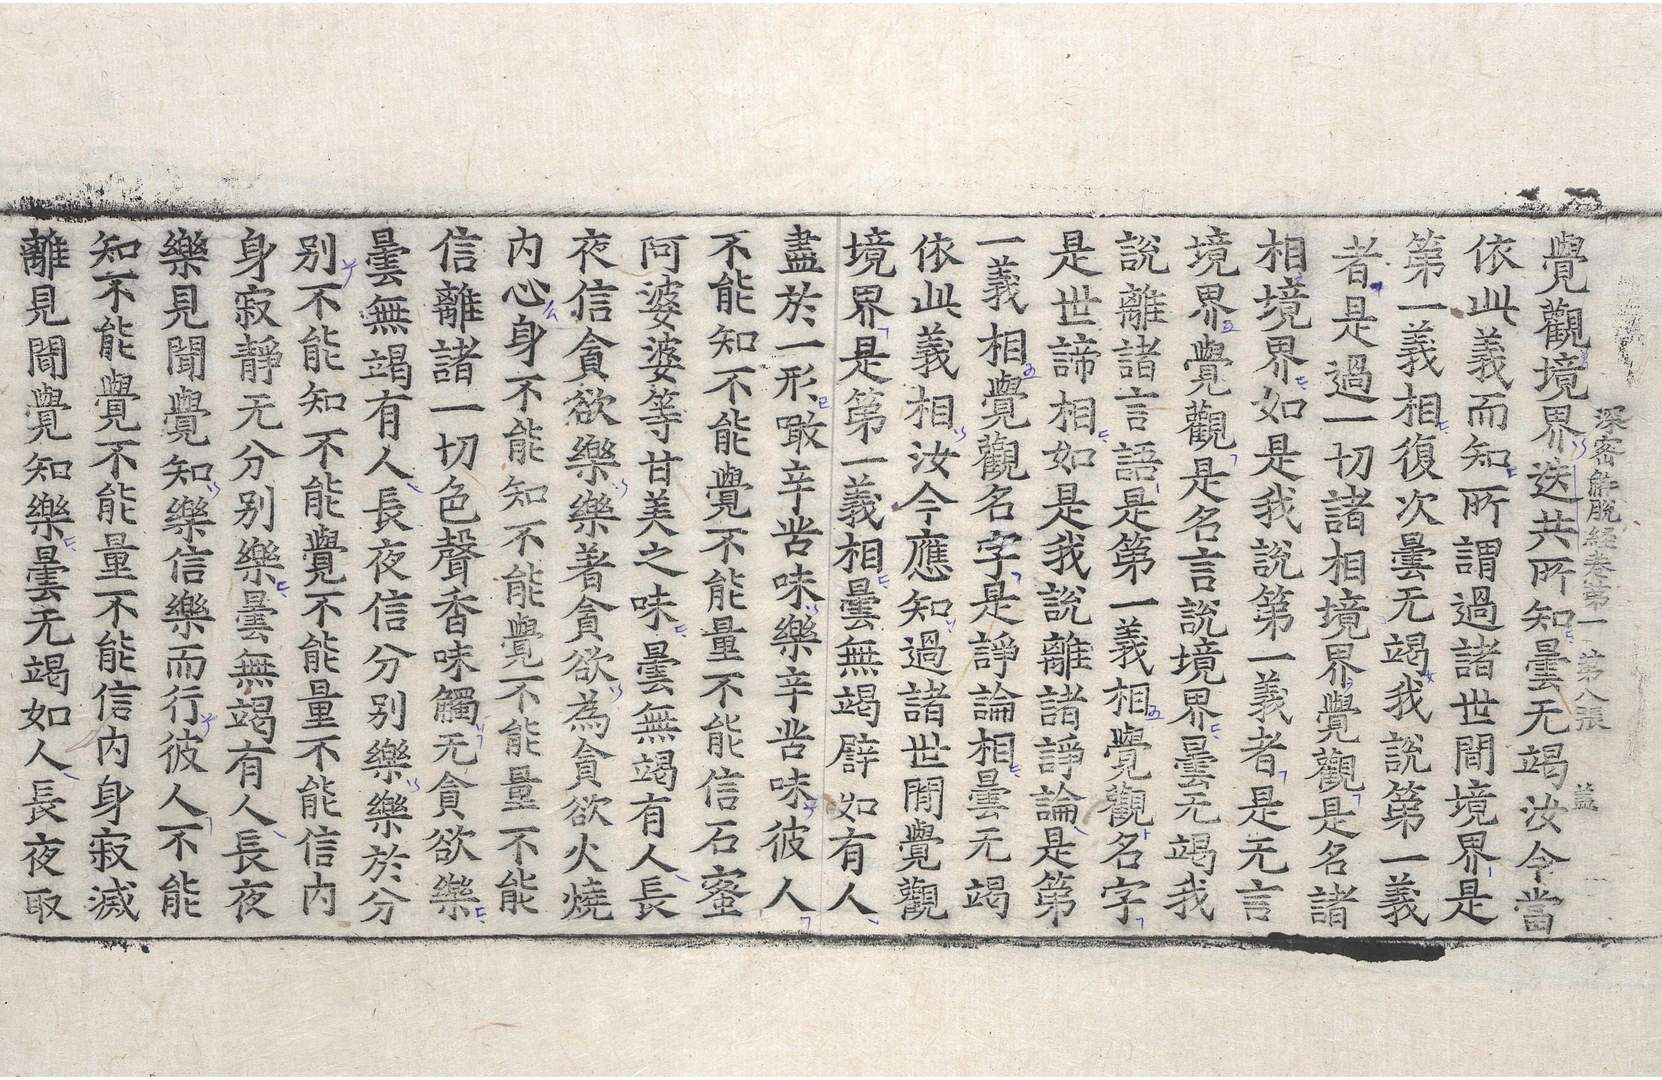 深密解脫經卷第一 第八張 盖
覺觀境界迭共所知曇无竭汝今當
依此義而知所謂過諸世間境界是
第一義相復次曇无竭我說第一義
者是過一切諸相境界覺觀是名諸
相境界如是我說第一義者是无言
境界覺觀是名言說境界曇无竭我
說離諸言語是第一義相覺觀名字
是世諦相如是我說離諸諍論是第
一義相覺觀名字是諍論相曇无竭
依此義相汝今應知過諸世間覺觀
境界是第一義相曇無竭譬如有人
盡於一形噉辛苦味樂辛苦味彼人
不能知不能覺不能量不能信石蜜
阿婆婆等甘美之味曇無竭有人長
夜信貪欲樂樂著貪欲為貪欲火燒
内心身不能知不能覺不能量不能
信離諸一切色聲香味觸无貪欲樂
曇無竭有人長夜信分別樂樂於分
別不能知不能覺不能量不能信内
身寂靜无分別樂曇無竭有人長夜
樂見聞覺知樂信樂而行彼人不能
知不能覺不能量不能信内身寂滅
離見聞覺知樂曇无竭如人長夜取